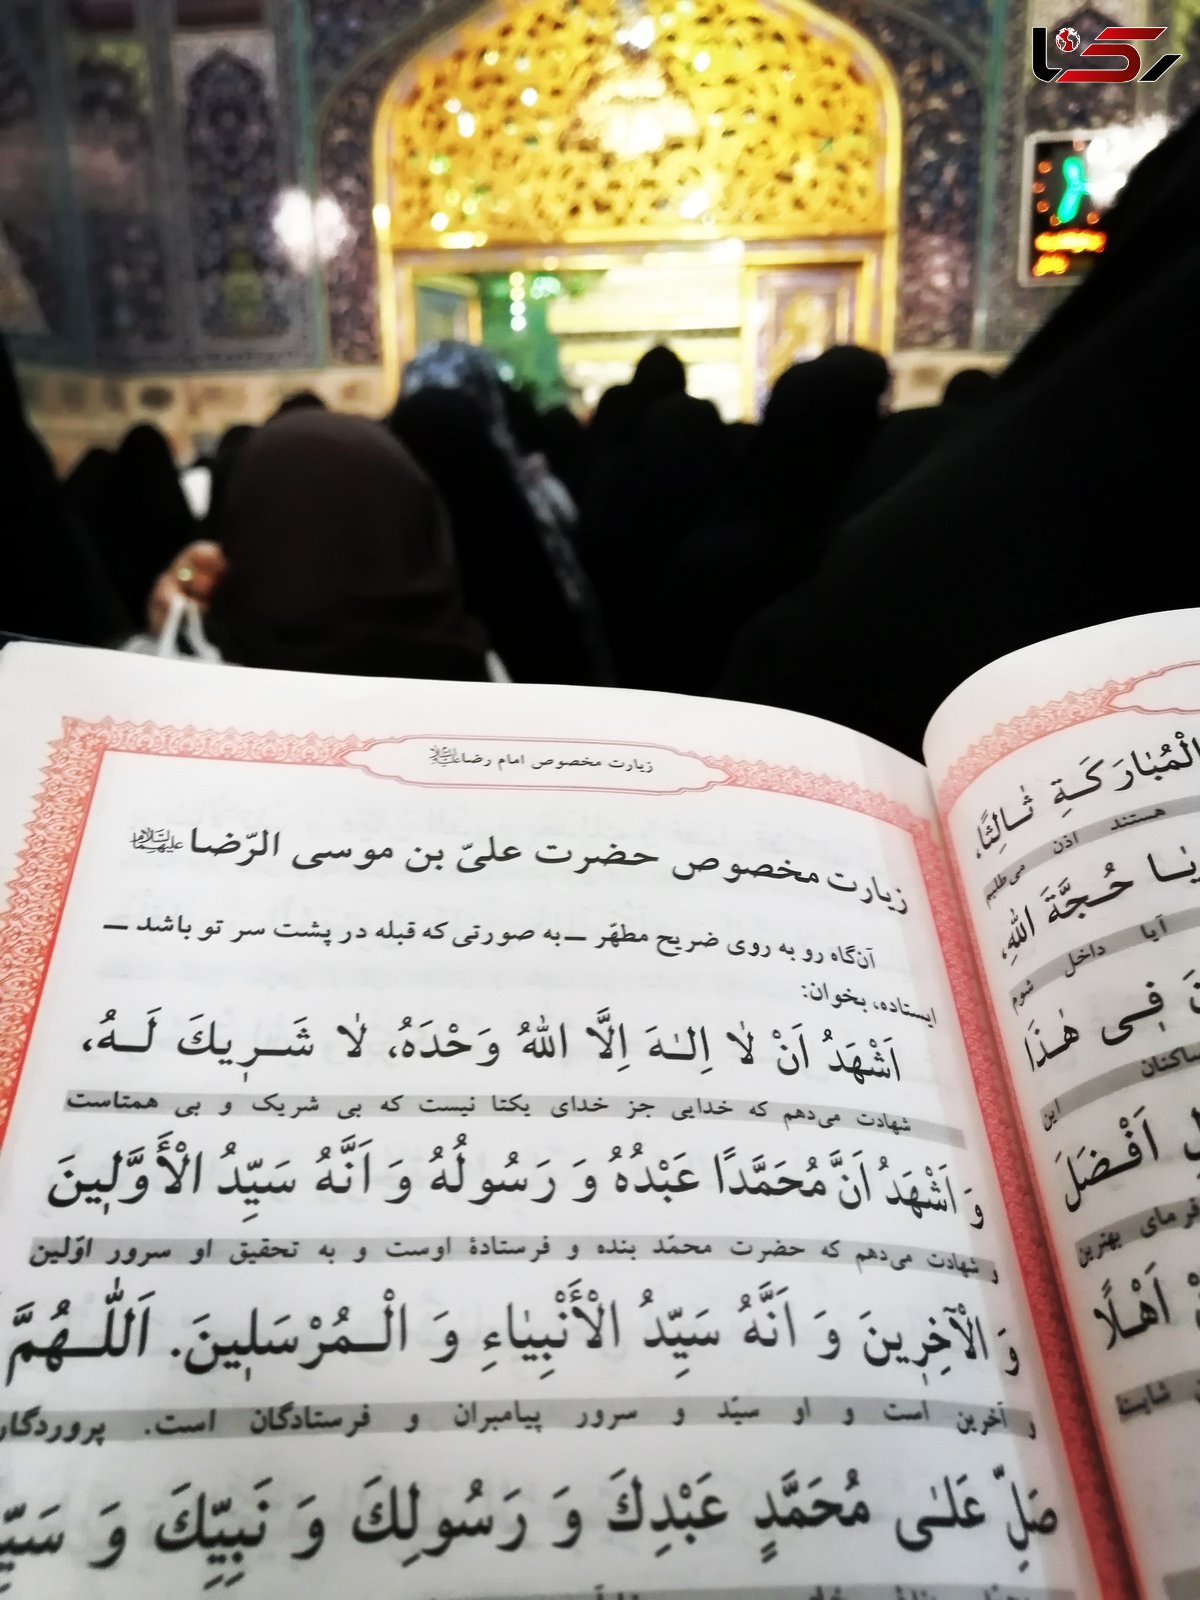 رکنا
زیارت مخصوص امام رضا علیه‌السلام
زیارت مخصوص حضرت علیّ بن موسی الرّضا علیهما السلام
آن‌گاه رو به روی ضریح مطهّر ــ به صورتی که قبله در پشت سر تو باشد ــ
ایستاده، بخوان:
اَشْهَدُ اَنْ لٰا اِلٰـهَ اِلَّا اللهُ وَحْدَهُ، لٰا شَـرِيكَ لَـهُ،
شهادت می‌دهم که خدایی جز خدای یکتا نیست که بی شریک و بی همتاست
وَ اَشْهَدُ اَنَّ مُحَمَّدًا عَبْدُهُ وَ رَسُولُهُ وَ اَنَّهُ سَيِّدُ الْأَوَّلِينَ
و شهادت می‌دهم که حضرت محمّد بنده و فرستادهٔ اوست و به تحقیق او سرور اوّلین
وَ الْآخِرِينَ وَ اَنَّهُ سَيِّدُ الْأَنْبِيٰاءِ وَ الْـمُرْسَلِينَ. اَللّٰـهُمَّ
و آخرین است و او سیّد و سرور پیامبران و فرستادگان است.
صَلِّ عَلـٰى مُحَمَّدٍ عَبْدِكَ وَ رَسُولِكَ وَ نَبِيِّكَ وَ
الْمُبٰارَكَـةِ ثٰـالِثًا،
هستند اذن می‌طلبم
حُـجَّةَ اللهِ،
آیا داخل شوم
فِـى هٰـذَا
ساکنان این
اَفْـضَلَ
بهترین
اَهْـلًا
شایستهٔ